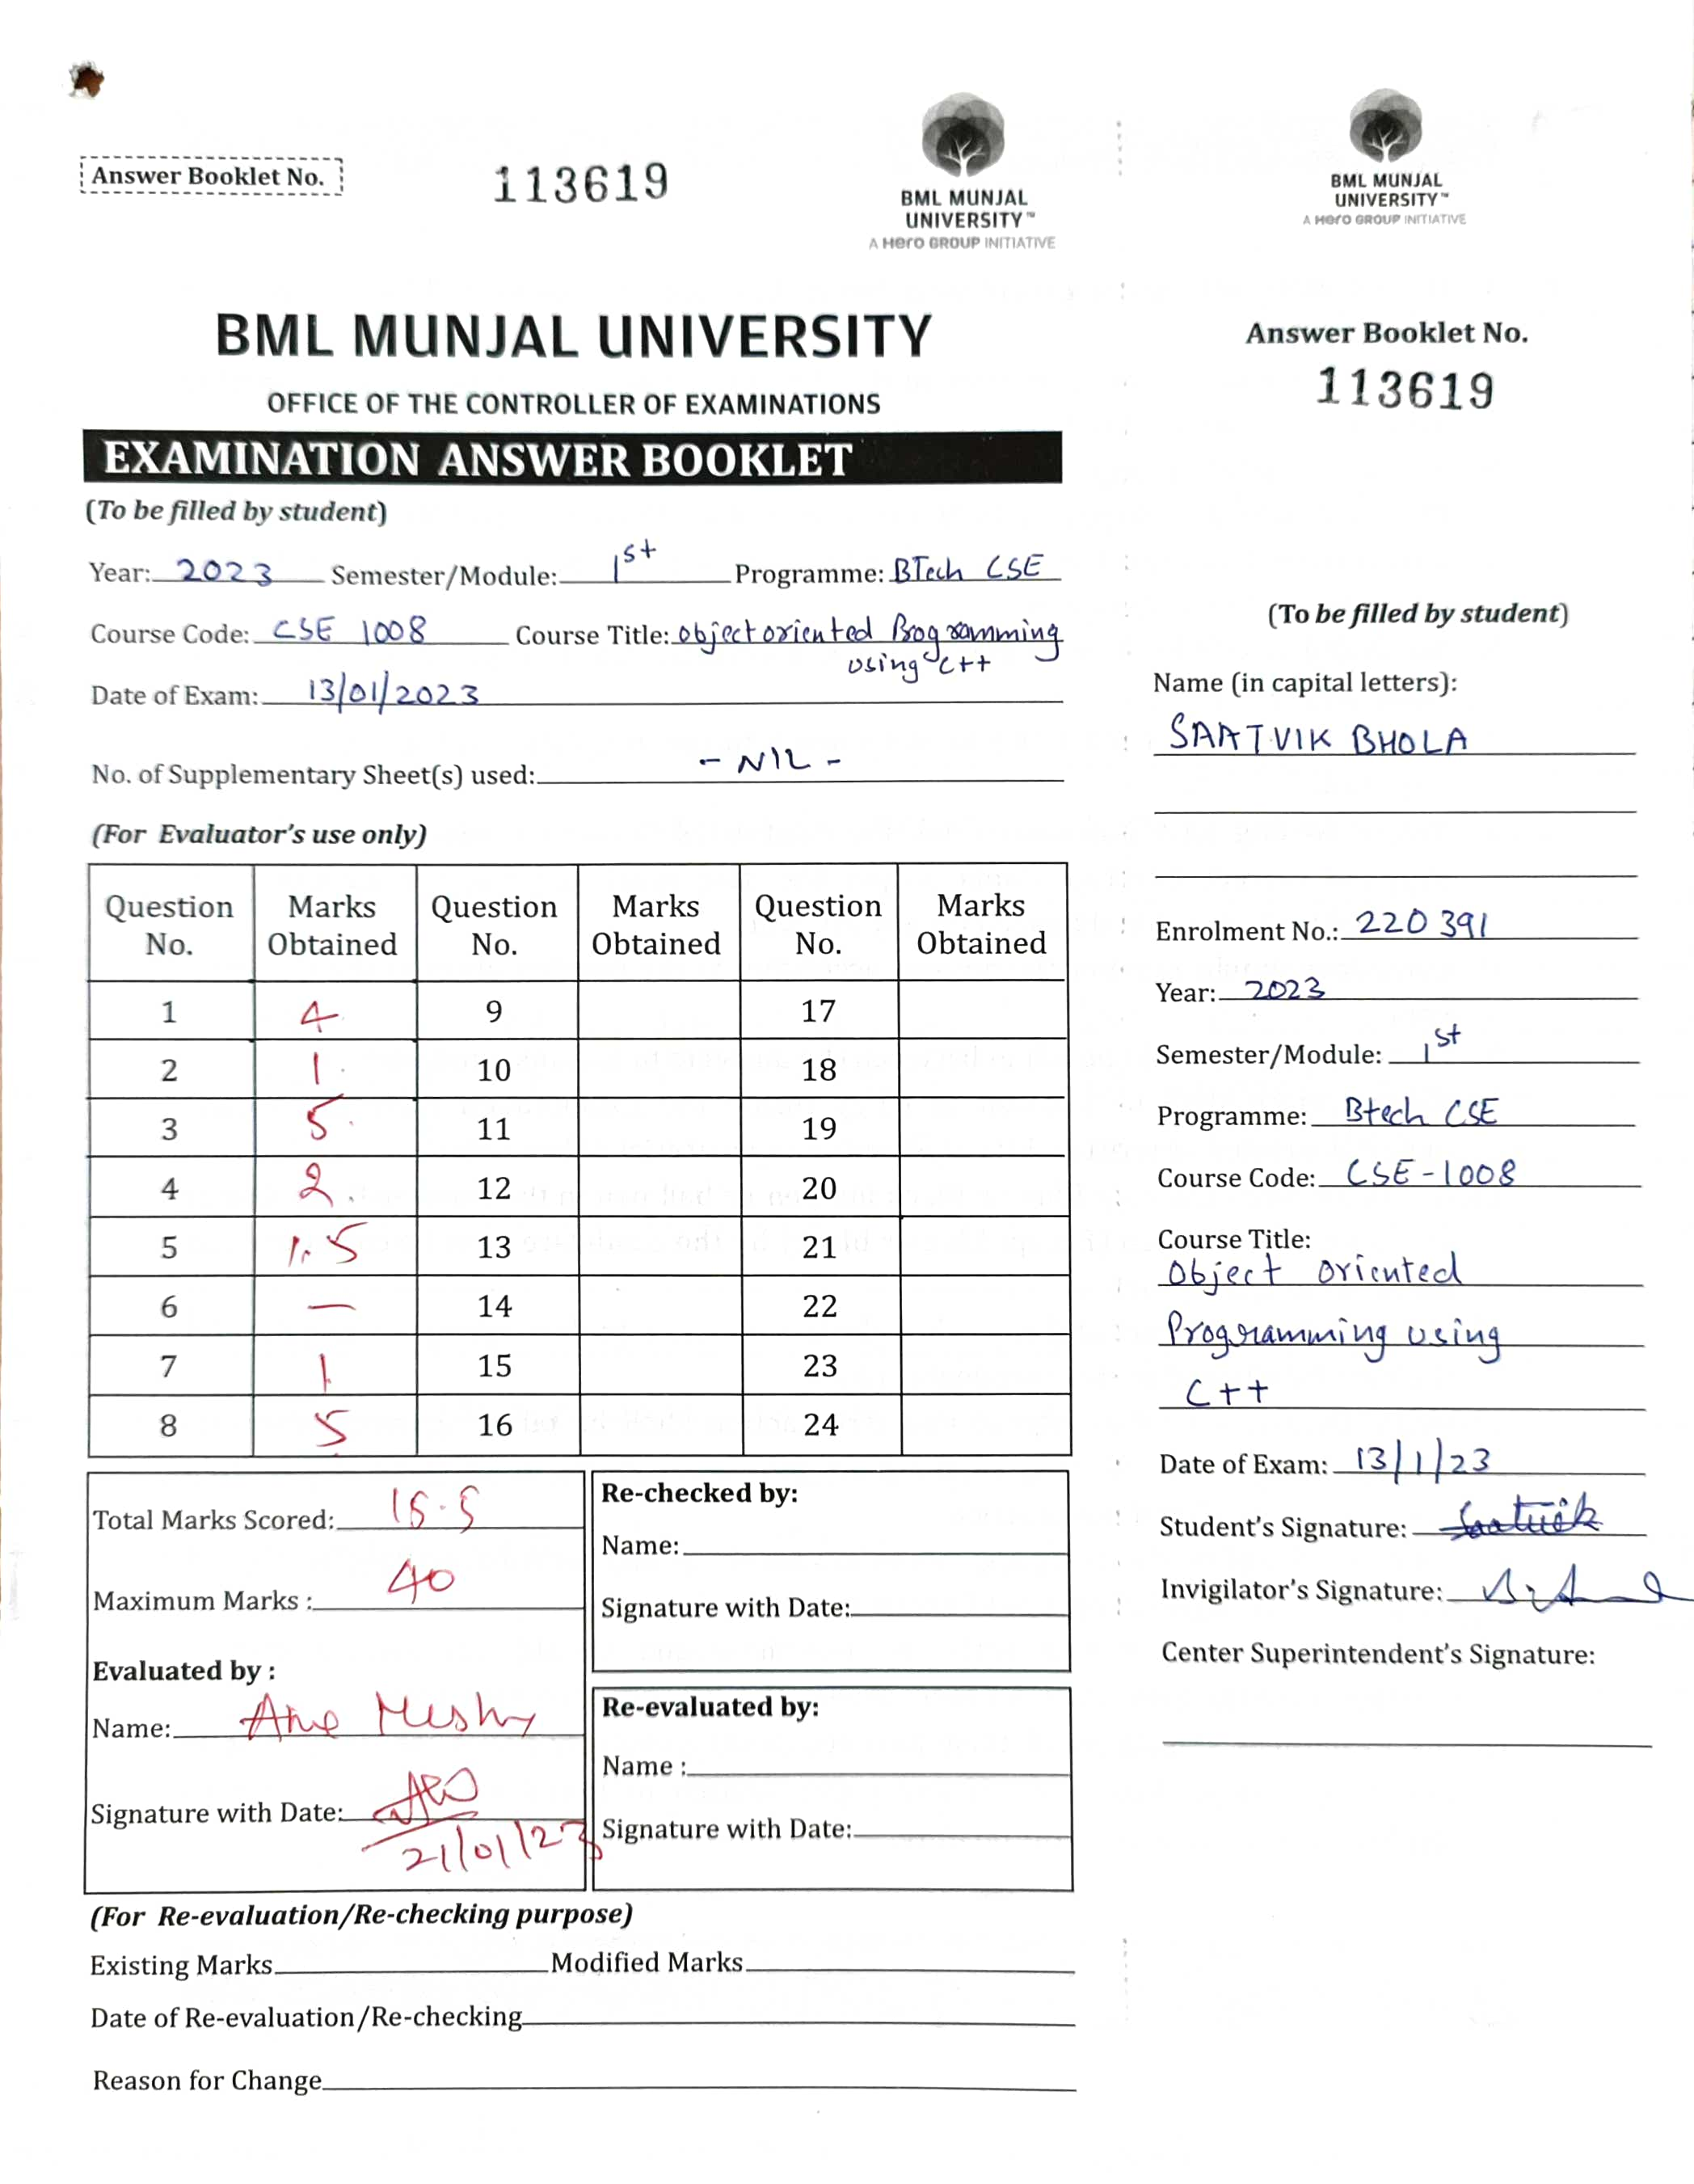 Answer Booklet No.
113619
BML MUNJAL
UNIVERSITY™
A Hero GROUP INITIATIVE
BML MUNJAL UNIVERSITY
OFFICE OF THE CONTROLLER OF EXAMINATIONS
EXAMINATION ANSWER BOOKLET
(To be filled by student)
Year: 2023 Semester/Module: 1st Programme: BTech CSE
Course Code: CSE 1008 Course Title: Object oriented Programming
using C++
Date of Exam: 13/01/2023
No. of Supplementary Sheet(s) used: - NIL -
(For Evaluator's use only)
Question No. Marks Obtained Question No. Marks Obtained Question No. Marks Obtained
1 4 9 17
2 1 10 18
3 5 11 19
4 2 12 20
5 1.5 13 21
6 — 14 22
7 1 15 23
8 5 16 24
Total Marks Scored: 15.5
Maximum Marks : 40
Evaluated by :
Name:
Signature with Date: 21/01/23
Re-checked by:
Name:
Signature with Date:
Re-evaluated by:
Name :
Signature with Date:
(For Re-evaluation/Re-checking purpose)
Existing Marks Modified Marks
Date of Re-evaluation/Re-checking
Reason for Change
BML MUNJAL
UNIVERSITY™
A Hero GROUP INITIATIVE
Answer Booklet No.
113619
(To be filled by student)
Name (in capital letters):
SAATVIK BHOLA
Enrolment No.: 220391
Year: 2023
Semester/Module: 1st
Programme: Btech CSE
Course Code: CSE-1008
Course Title:
Object Oriented
Programming using
C++
Date of Exam: 13/1/23
Student's Signature: Saatvik
Invigilator's Signature:
Center Superintendent's Signature: